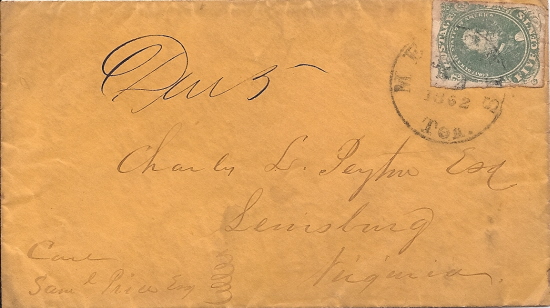 Due 5
M
S
1862
Ten.
Charles L. Peyton Esq
Lewisburg
Virginia
Care
Saml Price Esq